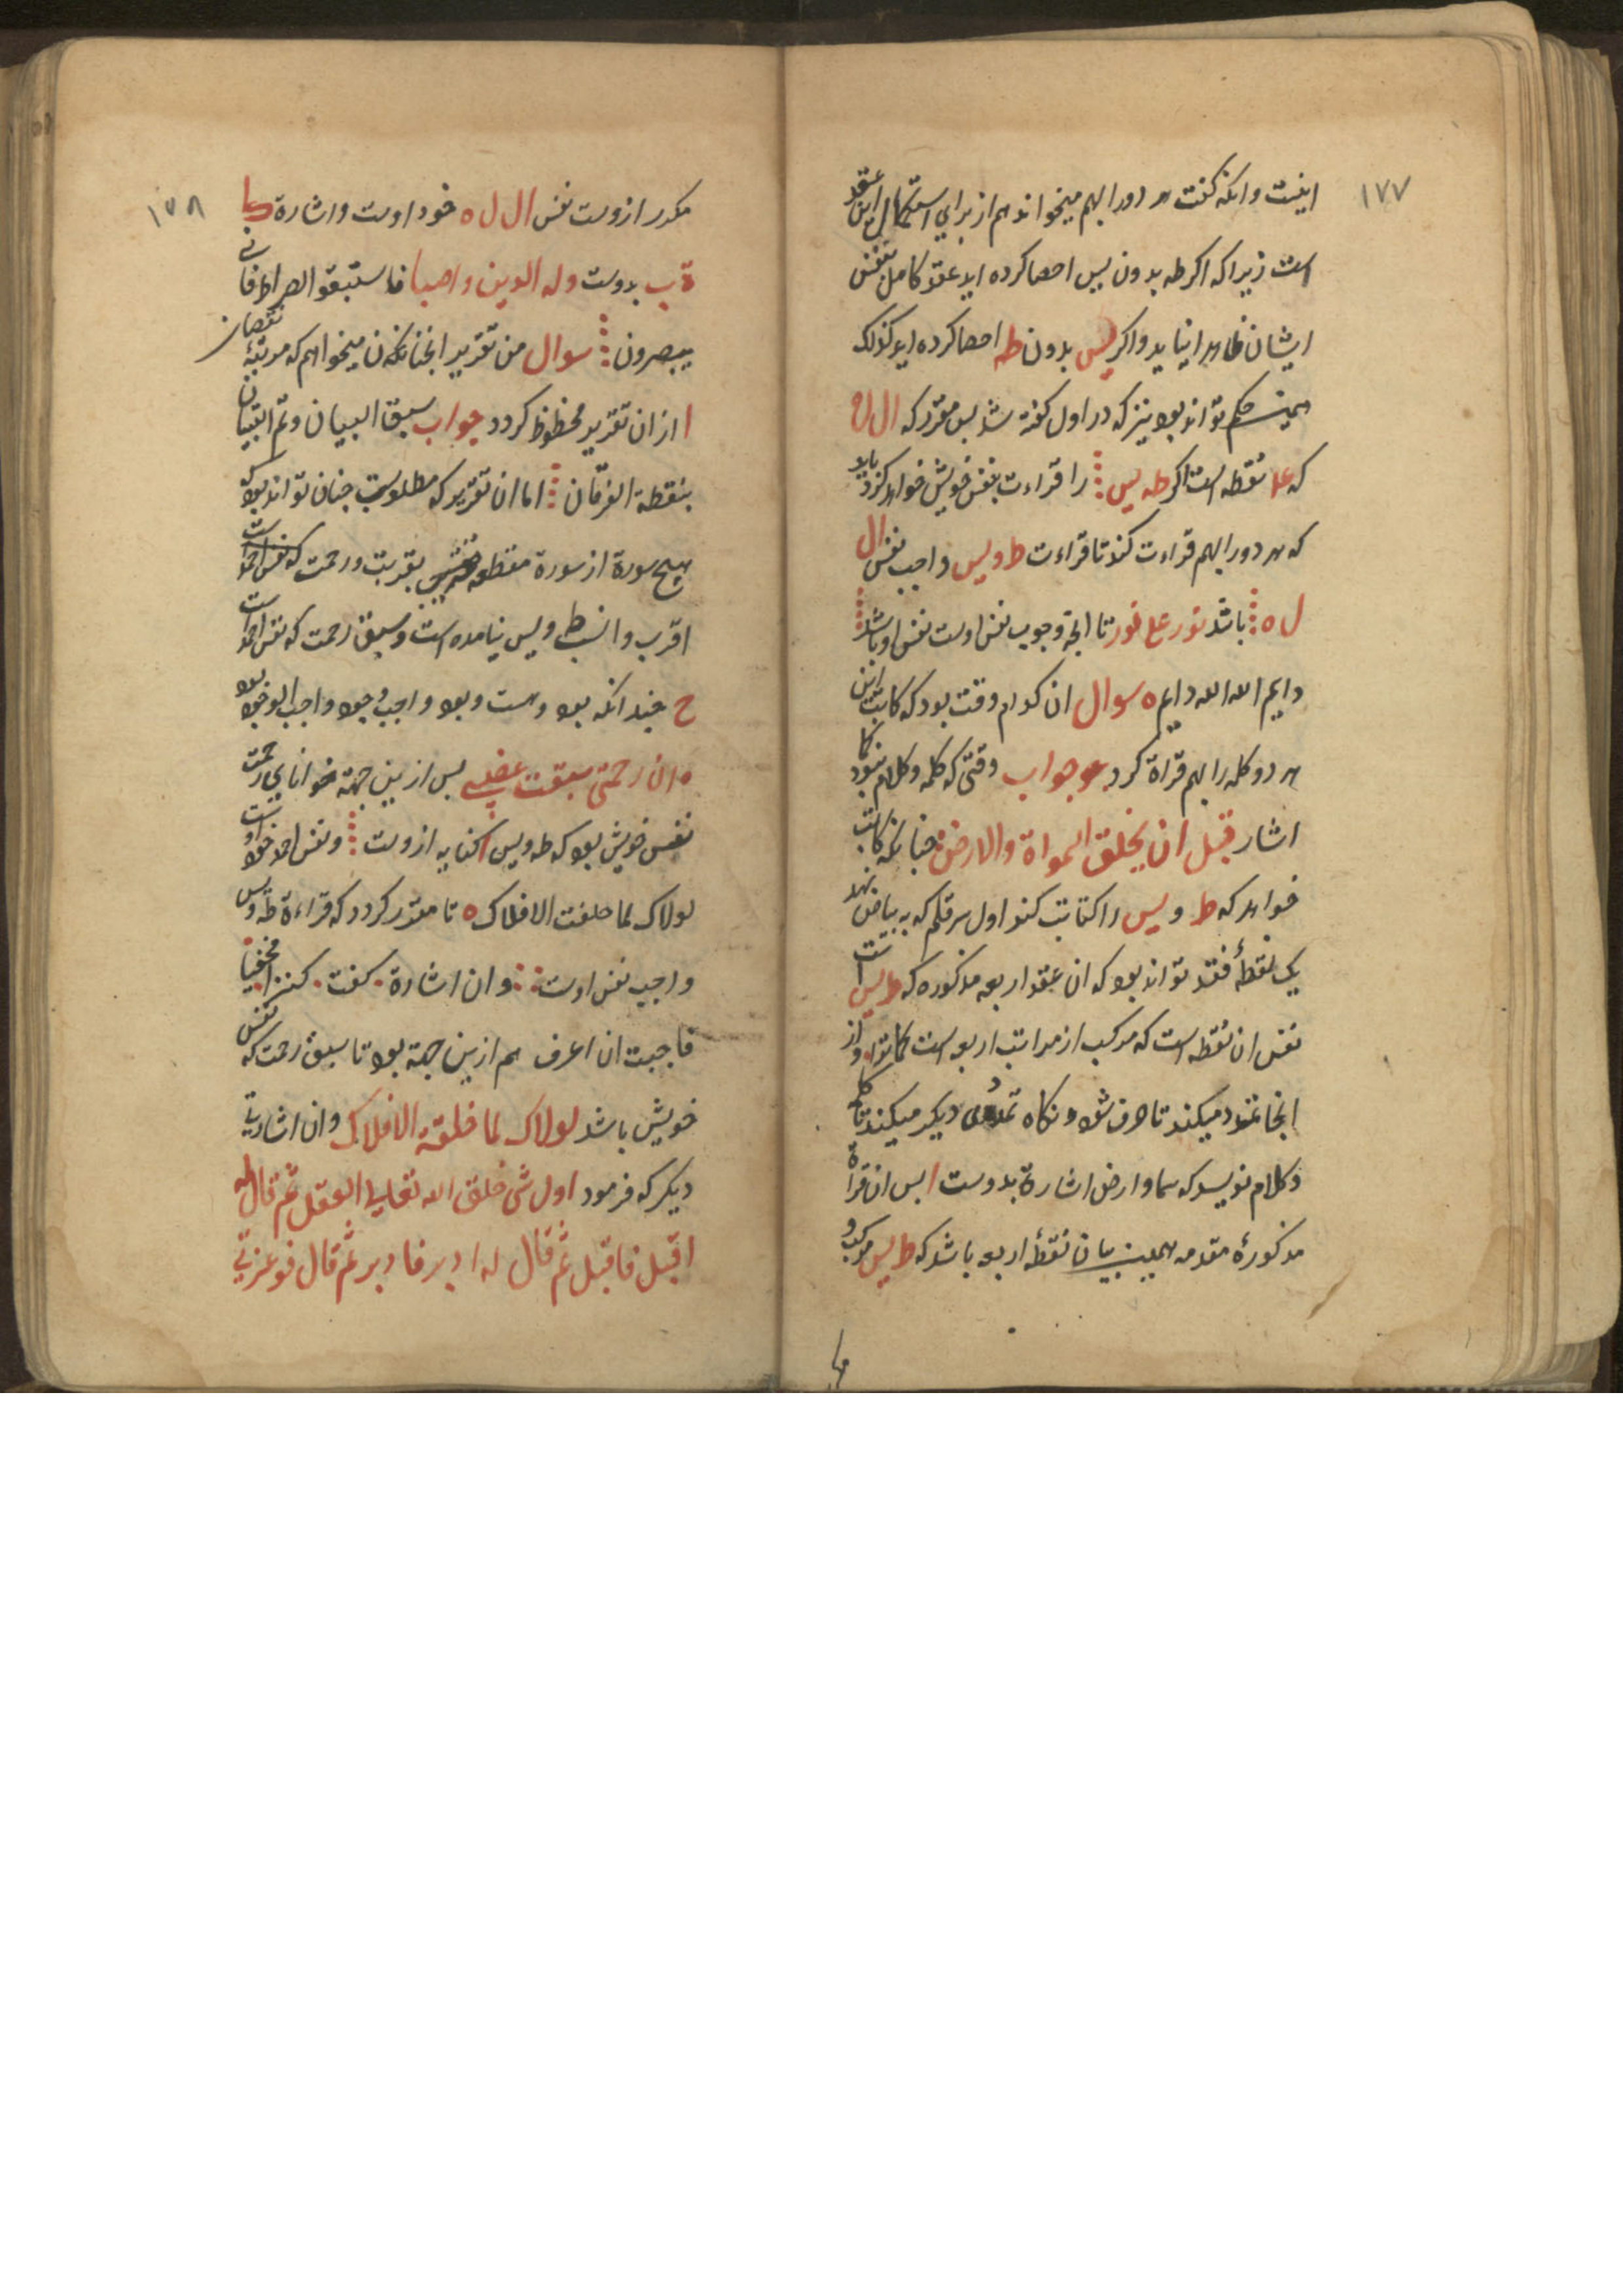 ١٧٧
اینست وانکه گفت هر دورا بهم میخواند هم از برای استکمال این عقد
است زیرا که اگر طه بدون یس احصا کرده اید عقد کامل بنفس
ایشان ظاهرا نیاید و اگر یس بدون طه احصا کرده اید کذلک
همین حکم تواند بود نیز که در اول گفته شد پس مقرر که ال ل ه
که علا نقطه است اگر طه یس را قراءت بنفس خویش خواهد کرد باید
که هر دورا بهم قراءت کند تا قراءت ط و یس واجب نفس ال
ل ه باشد نور علی نور تا انچه وجوب نفس اوست نفس او باشد
دایم الله الله دایم ه سوال ان کدام وقت بود که کاتب این
هر دو کلمه را بهم قراة کرد جواب وقتی که کلمه و کلام نبود کما
اشار قبل ان یخلق السمواة والارض چنانکه کاتب
خواهد که ط و یس را کتابت کند اول سر قلم که به بیاض نهد
یک نقطهٔ فقد تواند بود که ان عقد اربعه مذکوره که ط یس است
نفس ان نقطه است که مرکب از مراتب اربعه است کما تواتر و از
انجا تمدد میکند تا حرف شود و نکاه تمددی دیگر میکند تا کلمه
و کلام نویسد که سما و ارض اشارة بدوست ا پس ان قراة
مذکورهٔ مقدمه همین بیان نقطهٔ اربعه باشد که ط یس مرکب و
١٧٨
مکدر ازوست نفس ال ل ه خود اوست و اشارة کیا
ة ب بدوست وله الدین واصبا فاستبقوا الصراط فانی
یبصرون سوال من تقریر انچنانکه ن میخواهم که مرتبهٔ نقصان
ا ازان تقریر محظوظ کردد جواب سبق البیان و تم التبیان
بنقطة الفرقان اما ان تقریر که مطلوبست چنان تواند بود که
هیچ سورة از سورة مقطعه بقربت و رحمت که نفس احمد است
اقرب و انسب ط و یس نیامده است و سبق رحمت که نفس احمد است
ح چندانکه بود و هست و بود واجب وجود واجب الوجود بود
ه ان رحمتی سبقت غضبی پس ازین جهة خوانای رحمت
نفس خویش بود که طه و یس کنایه ازوست و نفس احمد خود اوست
لولاک لما خلقت الافلاک ه تا مقرر کردد که قراءة طه و یس
واجب نفس اوست و ان اشارة کفت کنز مخفیا
فاحببت ان اعرف هم ازین جهة بود تا سبق رحمت که نفس
خویش باشد لولاک لما خلقة الافلاک و ان اشارتی
دیگر که فرمود اول شی خلق الله تعالی العقل ثم قال له
اقبل فاقبل ثم قال له ادبر فادبر ثم قال فوعزتی